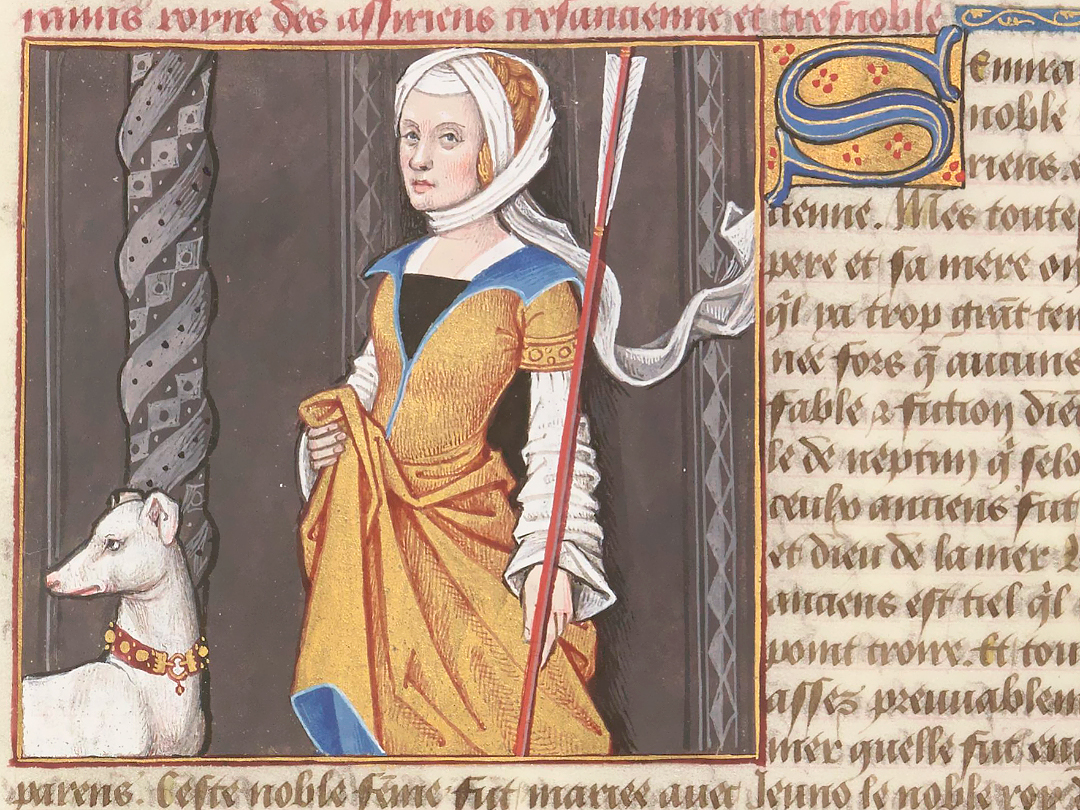 ramis royne des assiriens tresancienne et tresnoble
Semira
noble
riens. e
cienne. Mes toute
pere et sa mere on
q̃l ya trop grãt ten
nee fors q̃ aucuns
fable ⁊ fiction diẽ
le de neptun q̃ selo
ceulx anciens fut
et dieu de la mer
anciens est tiel q̃l
point croire. Et tou
assez preuuablem
mer quelle fut en
parens. Ceste noble fẽme fut mariee auec le noble roy